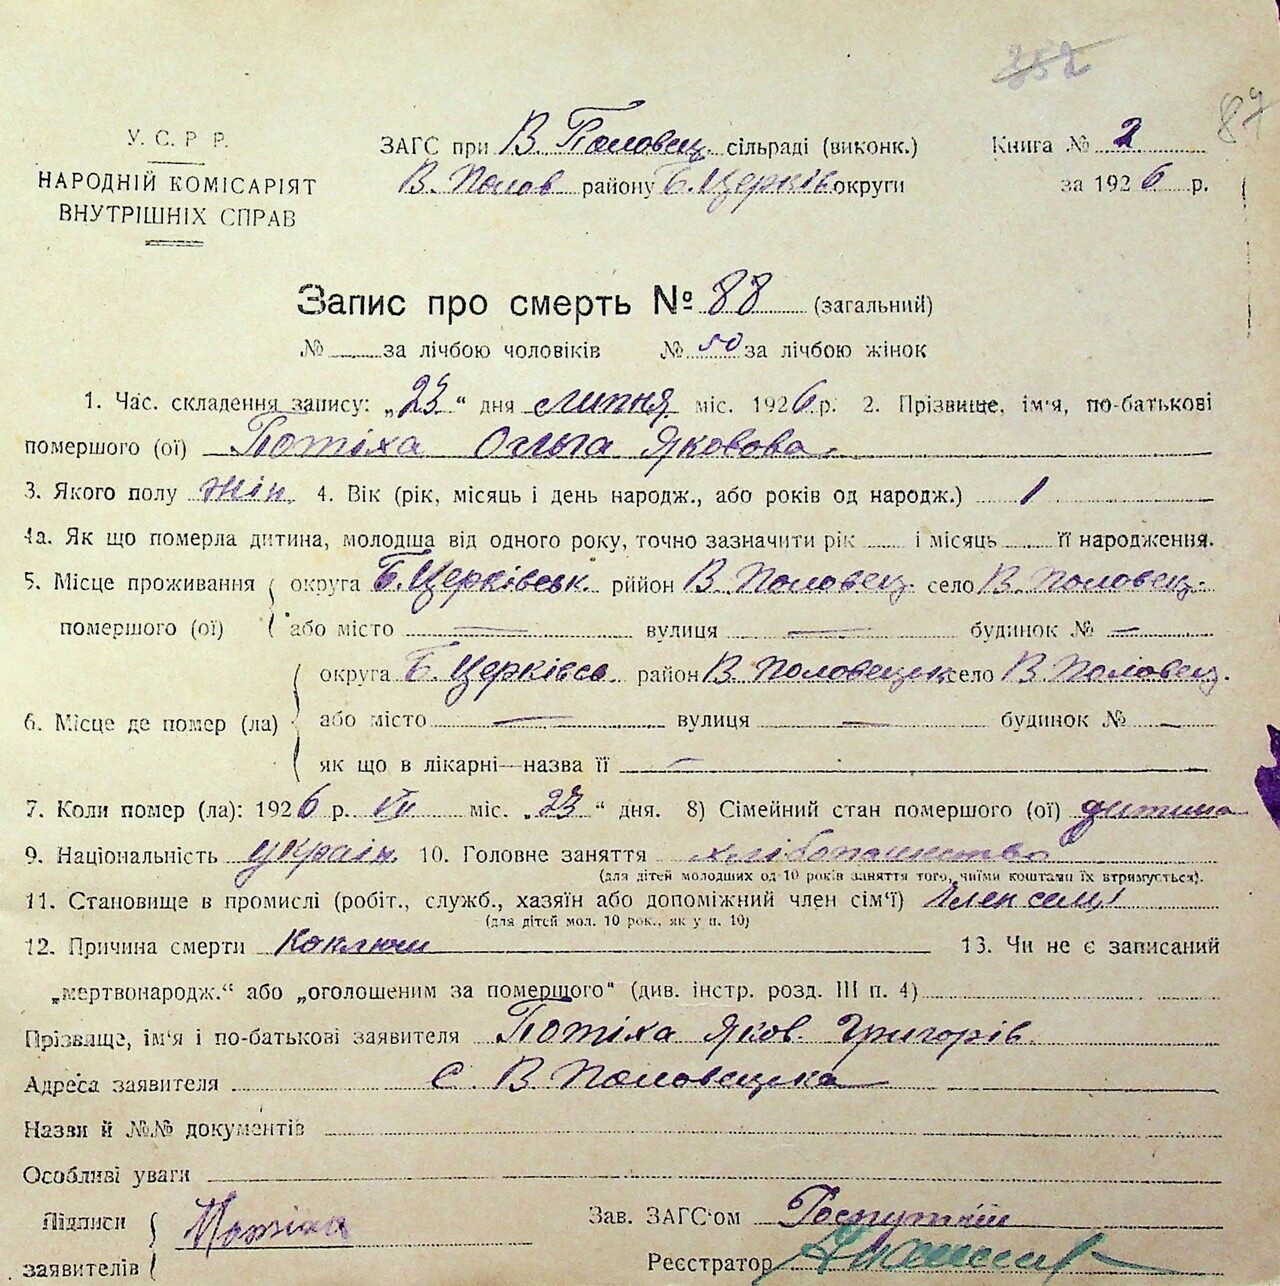 352
87
У. С. Р. Р.
НАРОДНІЙ КОМІСАРІЯТ
ВНУТРІШНІХ СПРАВ
ЗАГС при В Половец. сільраді (виконк.)
В. Полов району Б. Церків округи
Книга № 2
за 1926 р.
Запис про смерть № 88 (загальний)
№ за лічбою чоловіків № 50 за лічбою жінок
1. Час. складення запису: „23“ дня липня міс. 1926 р. 2. Прізвище, ім'я, по-батькові
помершого (ої) Потіха Ольга Яковова
3. Якого полу жін. 4. Вік (рік, місяць і день народж., або років од народж.) 1
4а. Як що померла дитина, молодша від одного року, точно зазначити рік і місяць її народження.
5. Місце проживання округа Б. Церківськ. рийон В. Половец. село В. Половец.
помершого (ої) або місто — вулиця — будинок № —
округа Б. Церківсь. район В Половецьк село В Половец.
6. Місце де помер (ла) або місто — вулиця — будинок № —
як що в лікарні—назва її —
7. Коли помер (ла): 1926 р. VII міс. „23“ дня. 8) Сімейний стан помершого (ої) дитина
9. Національність україн. 10. Головне заняття хлібопашество
(для дітей молодших од 10 років заняття того, чиїми коштами їх втримується).
11. Становище в промислі (робіт., служб., хазяїн або допоміжний член сім'ї) Член семї
(для дітей мол. 10 рок., як у п. 10)
12. Причина смерти Коклюш 13. Чи не є записаний
„мертвонародж.“ або „оголошеним за помершого“ (див. інстр. розд. III п. 4)
Прізвище, ім'я і по-батькові заявителя Потіха Яков. Григорів
Адреса заявителя с. В Половецка
Назви й №№ документів
Особливі уваги
Підписи Потіха
заявителів
Зав. ЗАГС'ом
Реєстратор